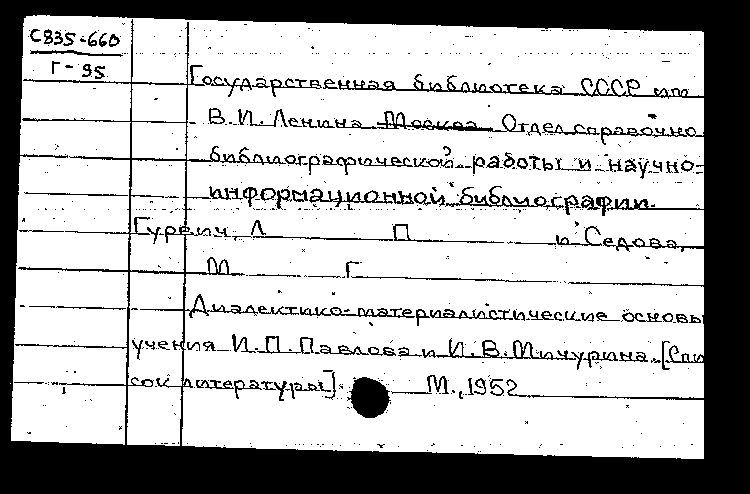 С835-660
Г-95
Государственная библиотека СССР им
В.И. Ленина Москва Отдел справочно
библиографической работы и научно-
информационной библиографии.
Гурвич, Л П и Седова,
М Г
Диалектико-материалистические основы
учения И.П. Павлова и И.В. Мичурина. [Спи
сок литературы]. М., 1952